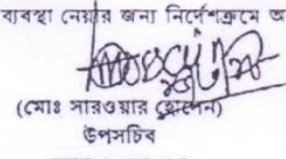 ব্যবস্থা নেয়ার জন্য নির্দেশক্রমে অ
(মোঃ সারওয়ার হোসেন)
উপসচিব